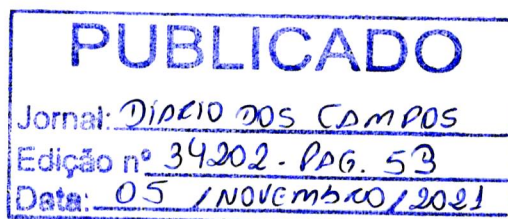 PUBLICADO
Jornal: DIÁRIO DOS CAMPOS
Edição nº 34202 - PAG. 53
Data: 05 / NOVEMBRO / 2021